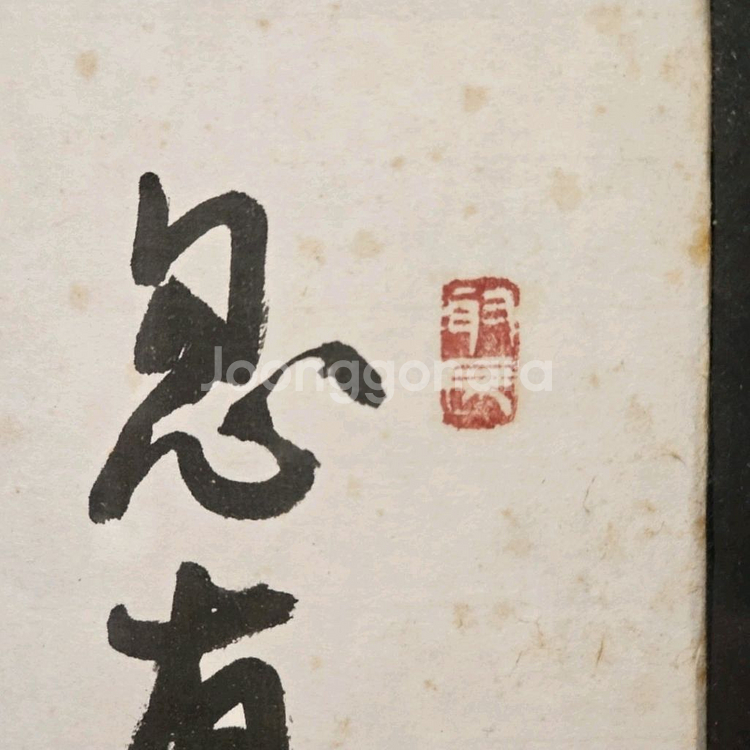 息有
Joonggonara